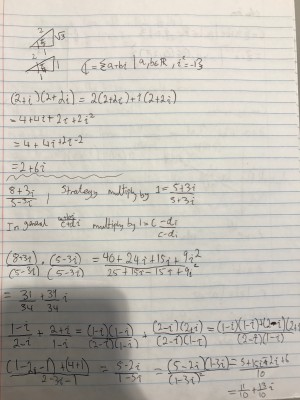 2 √3
1
2 1
1
ℂ = {a+bi | a,b∈ℝ, i²=-1}
(2+i)(2+2i) = 2(2+2i)+i(2+2i)
= 4+4i+2i+2i²
= 4+4i+2i-2
= 2+6i
8+3i / 5-3i, Strategy multiply by 1 = 5+3i / 5+3i
In general c+di multiply by 1 = c-di / c-di
(8+3i)/(5-3i) (5-3i)/(5-3i) = 40+24i+15i+9i² / 25+15i-15i+9i²
= 31/34 + 39/34 i
1-i / 2-i + 2+i / 1-i = (1-i)(1-i) / (2-i)(1-i) + (2-i)(2+i) / (2-i)(1-i) = (1-i)(1-i)+(2-i)(2+
(1-2i-1)+(4+1) / 2-3i-1 = 5-2i / 1-3i = (5-2i)(1-3i) / (1-3i) = 10
= 11/10 + 13/10 i